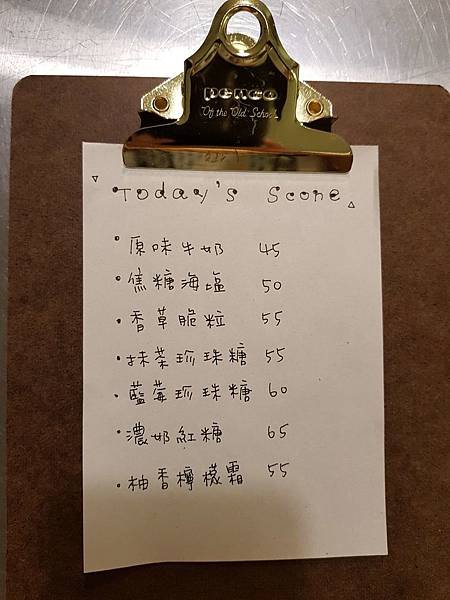 penco
Of the Old School
Today's Scone
·原味牛奶 45
·焦糖海塩 50
·香草脆粒 55
·抹茶珍珠糖 55
·藍莓珍珠糖 60
·濃奶紅糖 65
·柚香檸檬霜 55